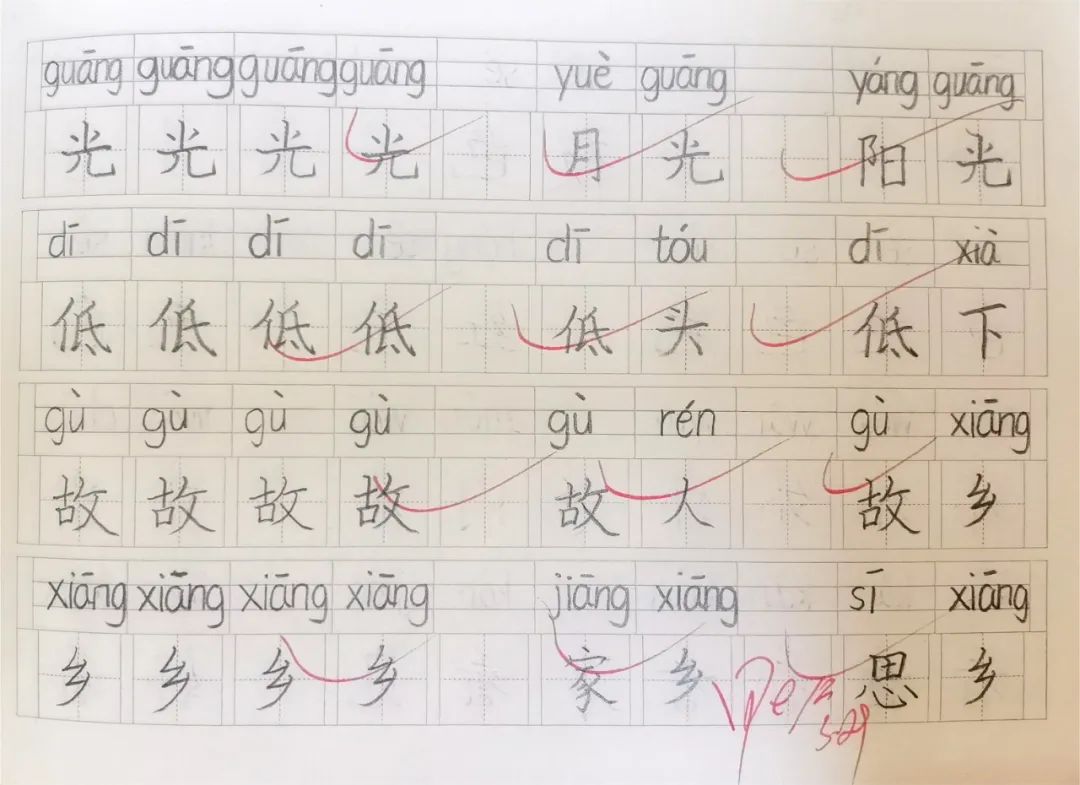 guāng guāng guāng guāng yuè guāng yáng guāng
光 光 光 光 月 光 阳 光
dī dī dī dī dī tóu dī xià
低 低 低 低 低 头 低 下
gù gù gù gù gù rén gù xiāng
故 故 故 故 故 人 故 乡
xiāng xiāng xiāng xiāng jiāng xiāng sī xiāng
乡 乡 乡 乡 家 乡 思 乡